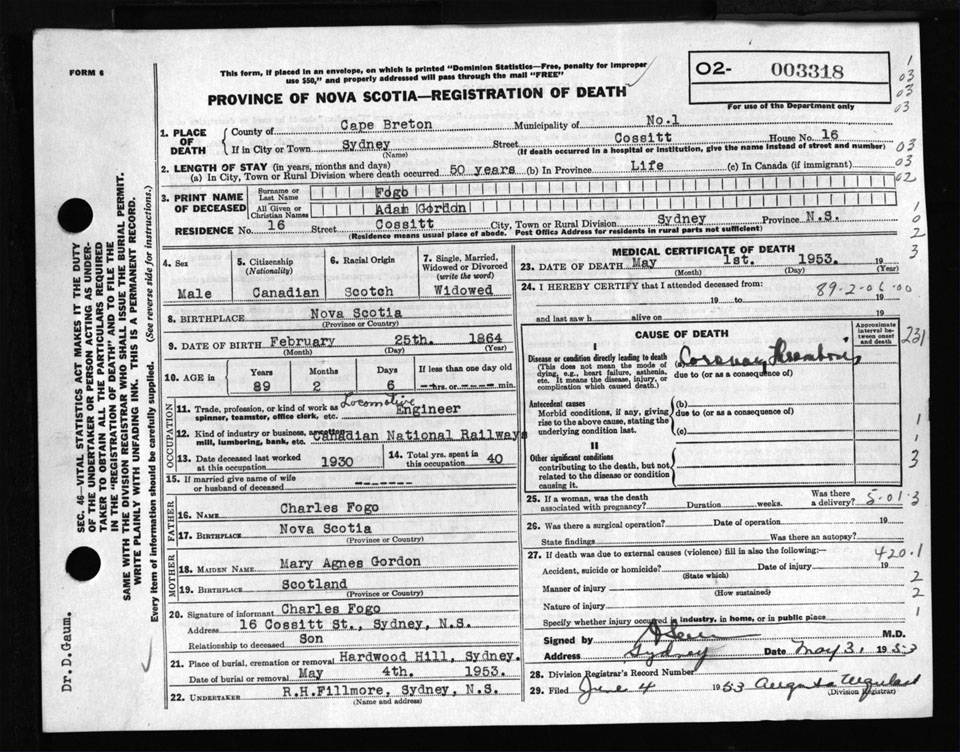 FORM 6
This form, if placed in an envelope, on which is printed "Dominion Statistics—Free, penalty for improper
use $50," and properly addressed will pass through the mail "FREE"
O2- 003318
For use of the Department only
PROVINCE OF NOVA SCOTIA—REGISTRATION OF DEATH
1. PLACE OF DEATH
County of Cape Breton Municipality of No.1
If in City or Town Sydney Street Cossitt House No. 16
(Name) (If death occurred in a hospital or institution, give the name instead of street and number)
2. LENGTH OF STAY (in years, months and days)
(a) In City, Town or Rural Division where death occurred 50 years (b) In Province Life (c) In Canada (if immigrant)
3. PRINT NAME OF DECEASED
Surname or Last Name Fogo
All Given or Christian Names Adam Gordon
RESIDENCE No. 16 Street Cossitt City, Town or Rural Division Sydney Province N.S.
(Residence means usual place of abode. Post Office Address for residents in rural parts not sufficient)
4. Sex Male
5. Citizenship (Nationality) Canadian
6. Racial Origin Scotch
7. Single, Married, Widowed or Divorced (write the word) Widowed
8. BIRTHPLACE Nova Scotia
(Province or Country)
9. DATE OF BIRTH February 25th. 1864
(Month) (Day) (Year)
10. AGE in Years 89 Months 2 Days 6 If less than one day hrs. or min.
OCCUPATION
11. Trade, profession, or kind of work as spinner, teamster, office clerk, etc. Locomotive Engineer
12. Kind of industry or business, as cotton mill, lumbering, bank, etc. Canadian National Railways
13. Date deceased last worked at this occupation 1930
14. Total yrs. spent in this occupation 40
15. If married give name of wife or husband of deceased -------
FATHER
16. NAME Charles Fogo
17. BIRTHPLACE Nova Scotia
(Province or Country)
MOTHER
18. MAIDEN NAME Mary Agnes Gordon
19. BIRTHPLACE Scotland
(Province or Country)
20. Signature of informant Charles Fogo
Address 16 Cossitt St., Sydney, N.S.
Relationship to deceased Son
21. Place of burial, cremation or removal Hardwood Hill, Sydney.
Date of burial or removal May 4th. 1953.
22. UNDERTAKER R.H.Fillmore, Sydney, N.S.
(Name and address)
MEDICAL CERTIFICATE OF DEATH
23. DATE OF DEATH May 1st. 1953. 19
(Month) (Day) (Year)
24. I HEREBY CERTIFY that I attended deceased from: 89-2-06-00
19 to 19
and last saw h alive on 19
CAUSE OF DEATH
Approximate interval between onset and death
I
Disease or condition directly leading to death
(This does not mean the mode of dying, e.g., heart failure, asthenia, etc. It means the disease, injury, or complication which caused death.)
(a) Coronary Thrombosis
due to (or as a consequence of)
Antecedent causes
Morbid conditions, if any, giving rise to the above cause, stating the underlying condition last.
(b)
due to (or as a consequence of)
(c)
II
Other significant conditions
contributing to the death, but not related to the disease or condition causing it.
25. If a woman, was the death associated with pregnancy? Duration weeks. Was there a delivery? 5-01-3
26. Was there a surgical operation? Date of operation 19
State findings Was there an autopsy?
27. If death was due to external causes (violence) fill in also the following: 420.1
Accident, suicide or homicide? Date of injury 19
(State which)
Manner of injury
(How sustained)
Nature of injury
Specify whether injury occurred in industry, in home, or in public place
Signed by M.D.
Address Sydney Date May 31 1953
28. Division Registrar's Record Number
29. Filed June 4 1953 Augusta
(Division Registrar)
1
03
03
03
03
03
02
1
0
2
3
231
1
1
3
1
2
2
1
SEC. 46—VITAL STATISTICS ACT MAKES IT THE DUTY
OF THE UNDERTAKER OR PERSON ACTING AS UNDER-
TAKER TO OBTAIN ALL THE PARTICULARS REQUIRED
IN THE "REGISTRATION OF DEATH" AND TO FILE THE
SAME WITH THE DIVISION REGISTRAR WHO SHALL ISSUE THE BURIAL PERMIT.
WRITE PLAINLY WITH UNFADING INK. THIS IS A PERMANENT RECORD.
Every item of information should be carefully supplied. (See reverse side for instructions.)
Dr.D.Gaum.